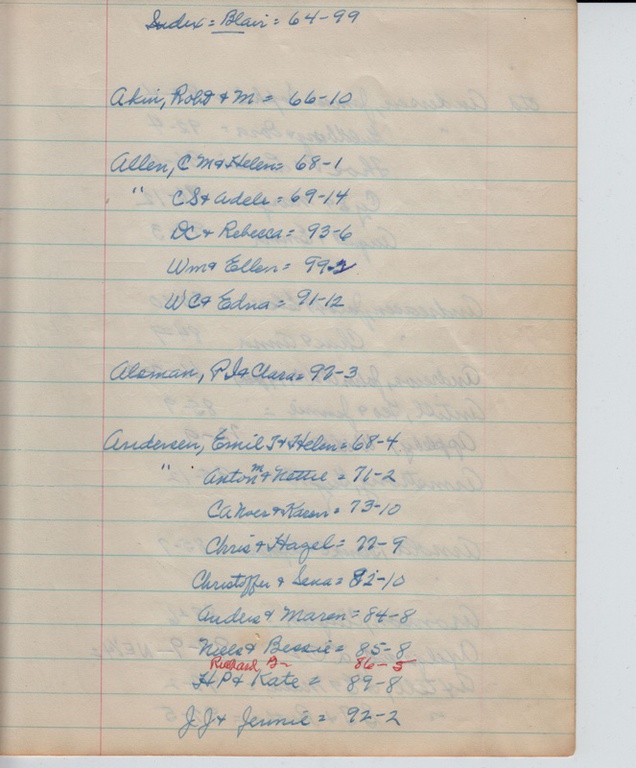 Index = Blair = 64-99
Akin, Robt & M = 66-10
Allen, C M & Helen = 68-1
" CS & Adele = 69-14
DC & Rebecca = 93-6
Wm & Ellen = 99-2
WC & Edna = 91-12
Aloman, P I & Clara = 92-3
Andersen, Emil T & Helen = 68-4
" Anton M & Nettie = 71-2
& Karen = 73-10
Chris & Hazel = 77-9
Christoffer & Sena = 82-10
Anders & Maren = 84-8
Niels & Bessie = 85-8
Richard 86-5
H.P & Kate = 89-8
J.J & Jennie = 92-2